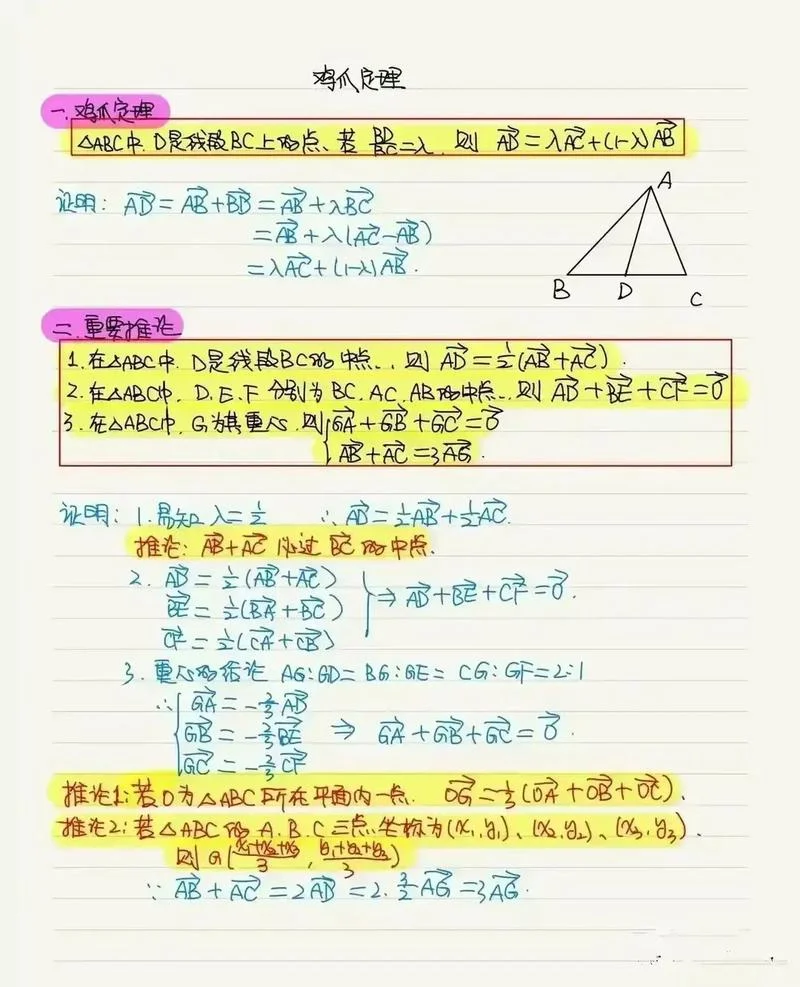 鸡爪定理
一.鸡爪定理
△ABC中.D是线段BC上的点、若 BD/BC=λ.则 AD→=λAC→+(1-λ)AB→
证明: AD→=AB→+BD→=AB→+λBC→
=AB→+λ(AC→-AB→)
=λAC→+(1-λ)AB→.
A
B D C
二.重要推论
1.在△ABC中.D是线段BC的中点..则 AD→=1/2(AB→+AC→).
2.在△ABC中.D.E.F分别为BC.AC.AB的中点..则 AD→+BE→+CF→=0→
3.在△ABC中.G为其重心.则{GA→+GB→+GC→=0→
AB→+AC→=3AG→.
证明: 1.易知λ=1/2 ∴AD→=1/2AB→+1/2AC→.
推论: AB→+AC→必过BC→的中点.
2. AD→=1/2(AB→+AC→)
BE→=1/2(BA→+BC→) } ⇒ AD→+BE→+CF→=0→.
CF→=1/2(CA→+CB→)
3.重心的结论 AG:GD=BG:GE=CG:GF=2:1
∴{GA→=-2/3AD→
GB→=-2/3BE→ ⇒ GA→+GB→+GC→=0→.
GC→=-2/3CF→
推论1:若O为△ABC所在平面内一点. OG→=1/3(OA→+OB→+OC→).
推论2:若△ABC的A.B.C三点坐标为(x₁,y₁)、(x₂,y₂)、(x₃,y₃).
则G((x₁+x₂+x₃)/3,(y₁+y₂+y₃)/3)
∵AB→+AC→=2AD→=2·3/2AG→=3AG→.